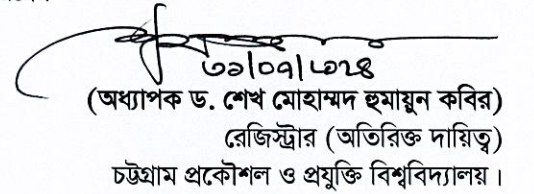 ৩১/০৭/২০২৪
(অধ্যাপক ড. শেখ মোহাম্মদ হুমায়ুন কবির)
রেজিস্ট্রার (অতিরিক্ত দায়িত্ব)
চট্টগ্রাম প্রকৌশল ও প্রযুক্তি বিশ্ববিদ্যালয়।